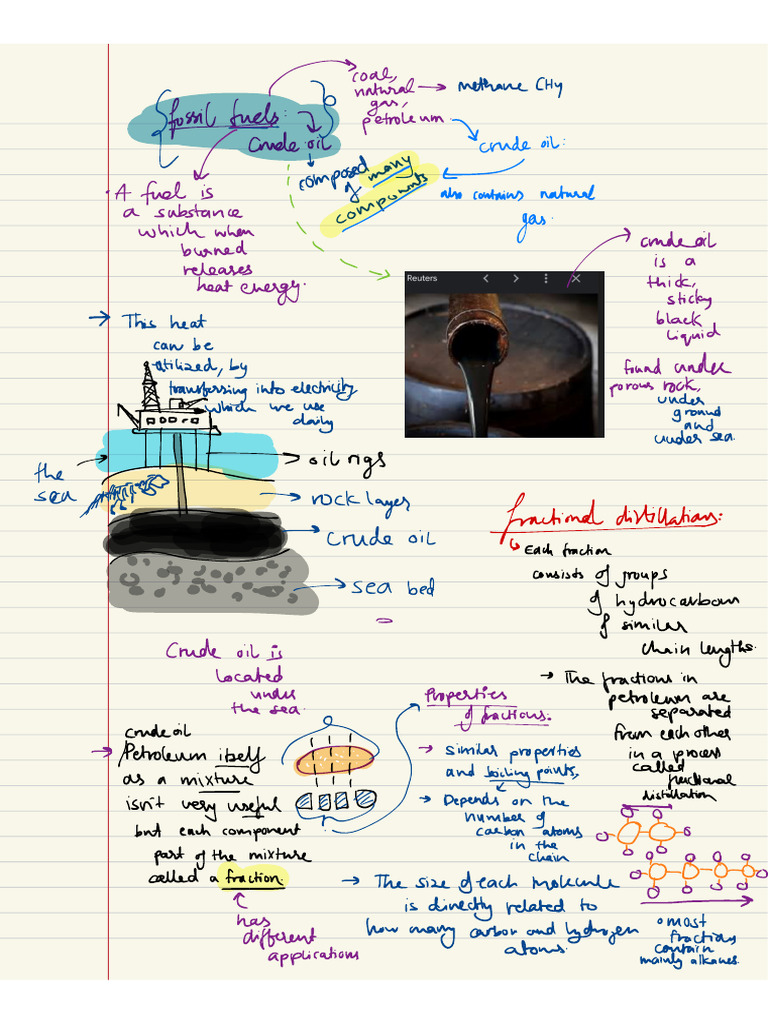 fossil fuels:
Crude oil
coal,
natural
gas,
petroleum
methane CH4
crude oil:
also contains natural
gas.
composed
of many
compounds
A fuel is
a substance
which when
burned
releases
heat energy.
Reuters
crude oil
is a
thick,
sticky
black
liquid
found under
porous rock,
under
ground
and
under sea.
This heat
can be
utilized, by
transferring into electricity
which we use
daily
the
sea
oil rigs
rock layer
crude oil
sea bed
Crude oil is
located
under
the sea.
fractional distillation:
Each fraction
consists of groups
of hydrocarbon
of similar
chain lengths.
The fractions in
petroleum are
separated
from each other
in a process
called
fractional
distillation
crude oil
Petroleum itself
as a mixture
isn't very useful
but each component
part of the mixture
called a fraction.
has
different
applications
Properties
of fractions.
similar properties
and boiling points,
Depends on the
number of
carbon atoms
in the
chain
The size of each molecule
is directly related to
how many carbon and hydrogen
atoms.
most
fractions
contain
mainly alkanes.